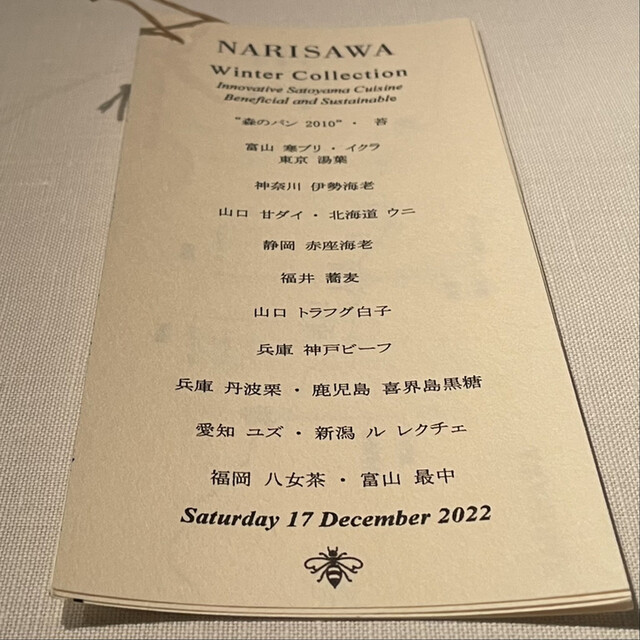 NARISAWA
Winter Collection
Innovative Satoyama Cuisine
Beneficial and Sustainable
“森のパン 2010”・ 苔
富山 寒ブリ・イクラ
東京 湯葉
神奈川 伊勢海老
山口 甘ダイ・北海道 ウニ
静岡 赤座海老
福井 蕎麦
山口 トラフグ白子
兵庫 神戸ビーフ
兵庫 丹波栗・鹿児島 喜界島黒糖
愛知 ユズ・新潟 ル レクチェ
福岡 八女茶・富山 最中
Saturday 17 December 2022